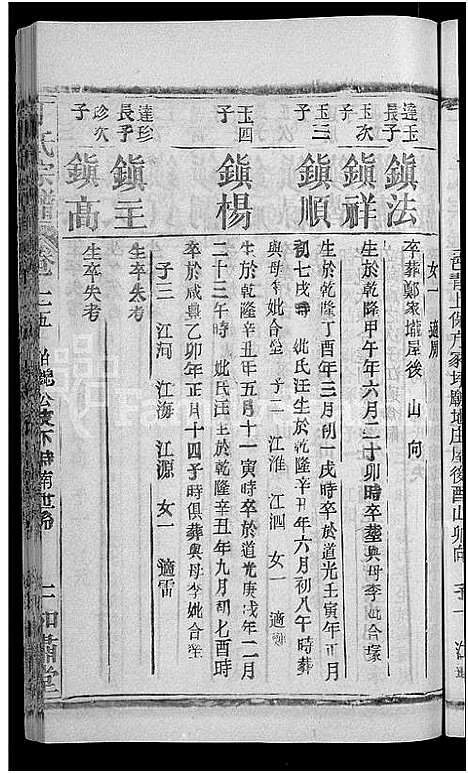 達玉長子
鎮法
女一 適
卒葬鄭家壠屋後 山 向
玉次子
鎮祥
生於乾隆甲午年六月二十卯時卒塟與母李妣合塚
玉三子
鎮順
生於乾隆丁酉年三月初一戌時卒於道光壬寅年正月
初七戌時 妣氏汪生於乾隆辛丑年六月初八午時葬
與母李妣合塋 子二 江淮 江泗 女一 適
玉四子
鎮楊
生於乾隆辛丑年五月十一寅時卒於道光庚戌年二月
二十三午時 妣氏汪生於乾隆辛丑年九月初七酉時
卒於咸豐乙卯年正月十四子時俱葬與母李妣合塋
子三 江河 江海 江源 女一 適雷
達珍長子
鎮主
生卒失考
珍次子
鎮高
生卒失考
氏宗譜 卷二五
公支下
三和 堂